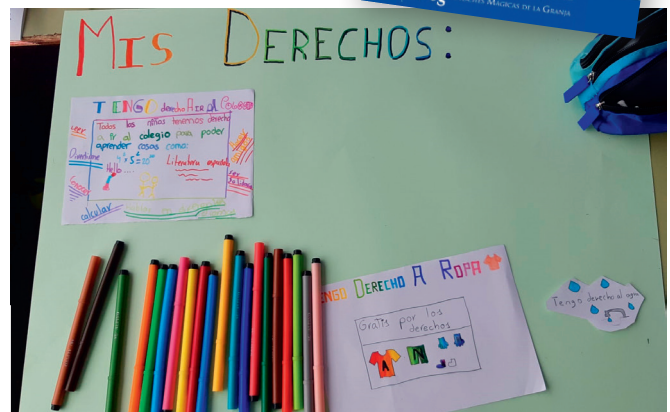 MÁGICAS DE LA GRANJA
MIS DERECHOS:
TIENGO derecho A IR AL COLEGIO
Todos los niños tenemos derecho
a ir al colegio para poder
aprender cosas como:
Hello...
Literatura española
leer
Divertidme
Conocer
calcular
TENGO DERECHO A ROPA
Gratis por los
derechos
A
N
Tengo derecho al agua